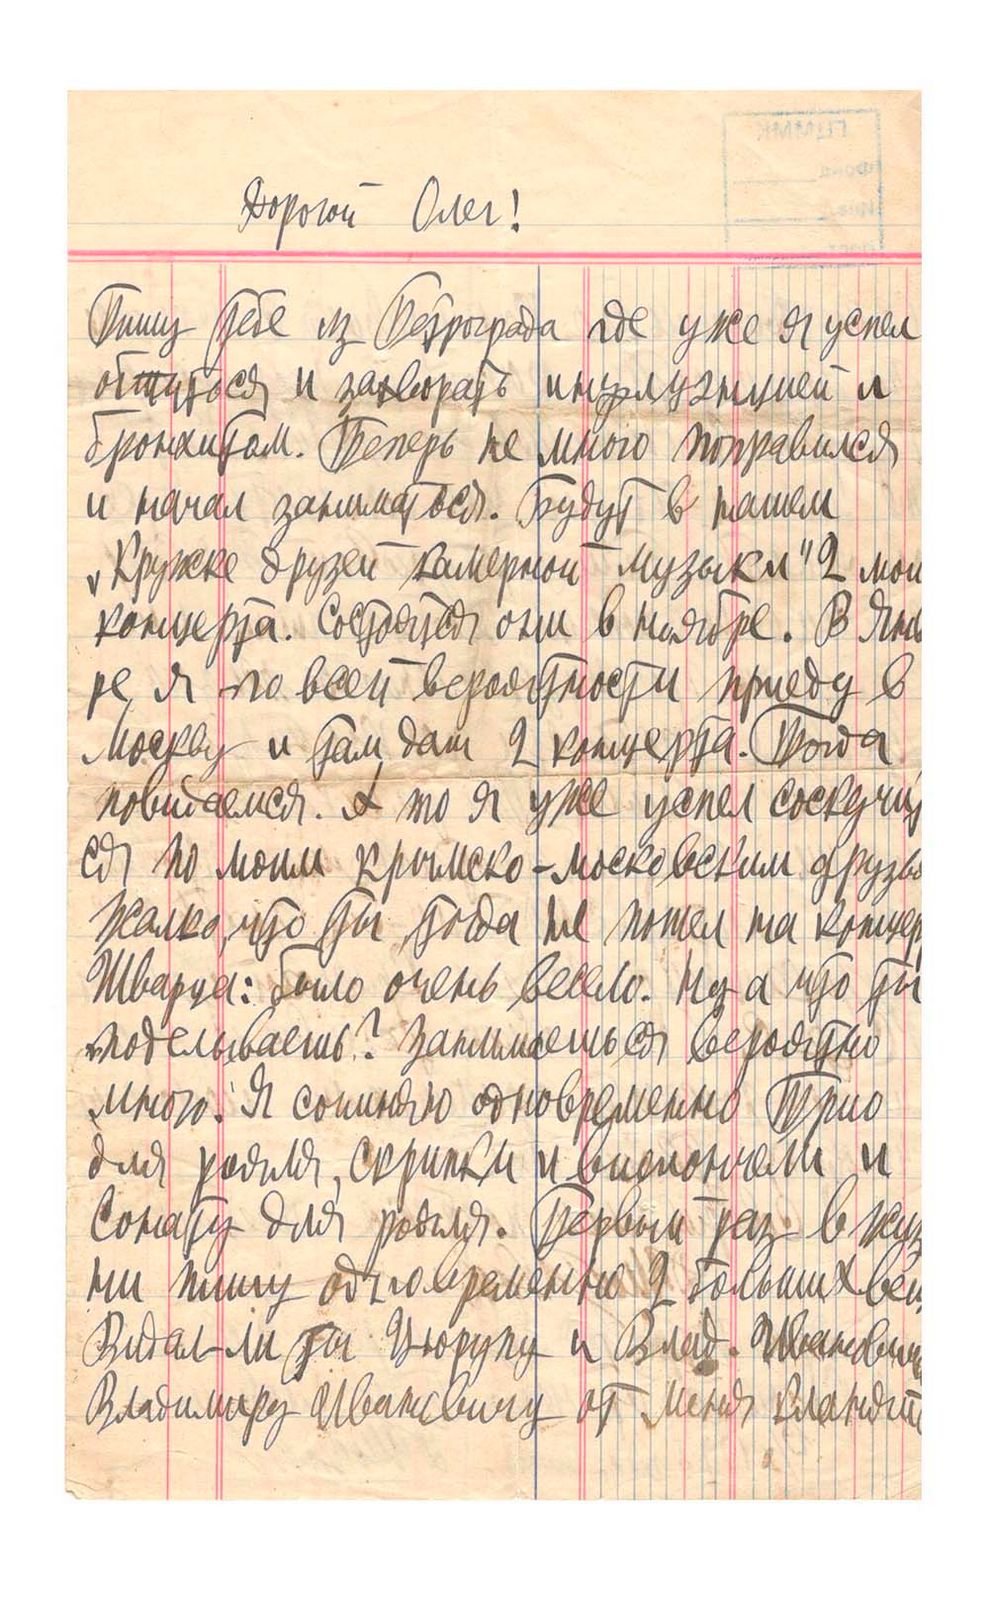 ГЦММК
Фонд
Инв.
Дорогой Олег!
Пишу тебе из Петрограда где уже я успел
и захворать инфлуэнцией и
бронхитом. Теперь не много поправился
и начал заниматься. Будут в нашем
„Кружке друзей камерной музыки" 2 мои
концерта. Состоятся они в ноябре. В Янва
ре я по всей вероятности приеду в
Москву и там дам 2 концерта. Тогда
повидаемся. А то я уже успел соскучить
ся по моим крымско-московским друзья
Жалко, что ты тогда не пошел на концер
Шварца: было очень весело. Ну а что ты
поделываешь? Занимаешься вероятно
много. Я сочиняю одновременно Трио
для рояля, скрипки и виолончели и
Сонату для рояля. Первый раз в жиз
ни пишу одновременно 2 больших вещ
Видал-ли ты Цюрупу и Влад. Ивановича
Владимиру Ивановичу от меня кланяйт